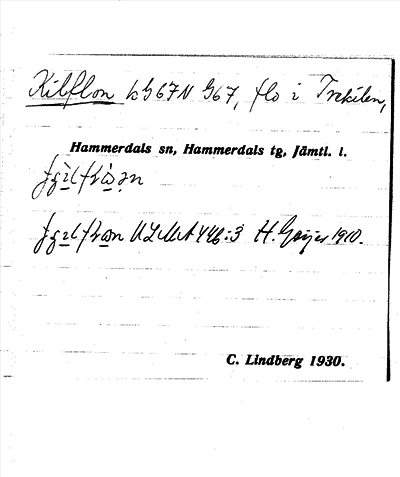 Kilflon kG67N G67, flo i Trekilen,
Hammerdals sn, Hammerdals tg, Jämtl. l.
ULMA 446:3 H. Geijer 1910.
C. Lindberg 1930.